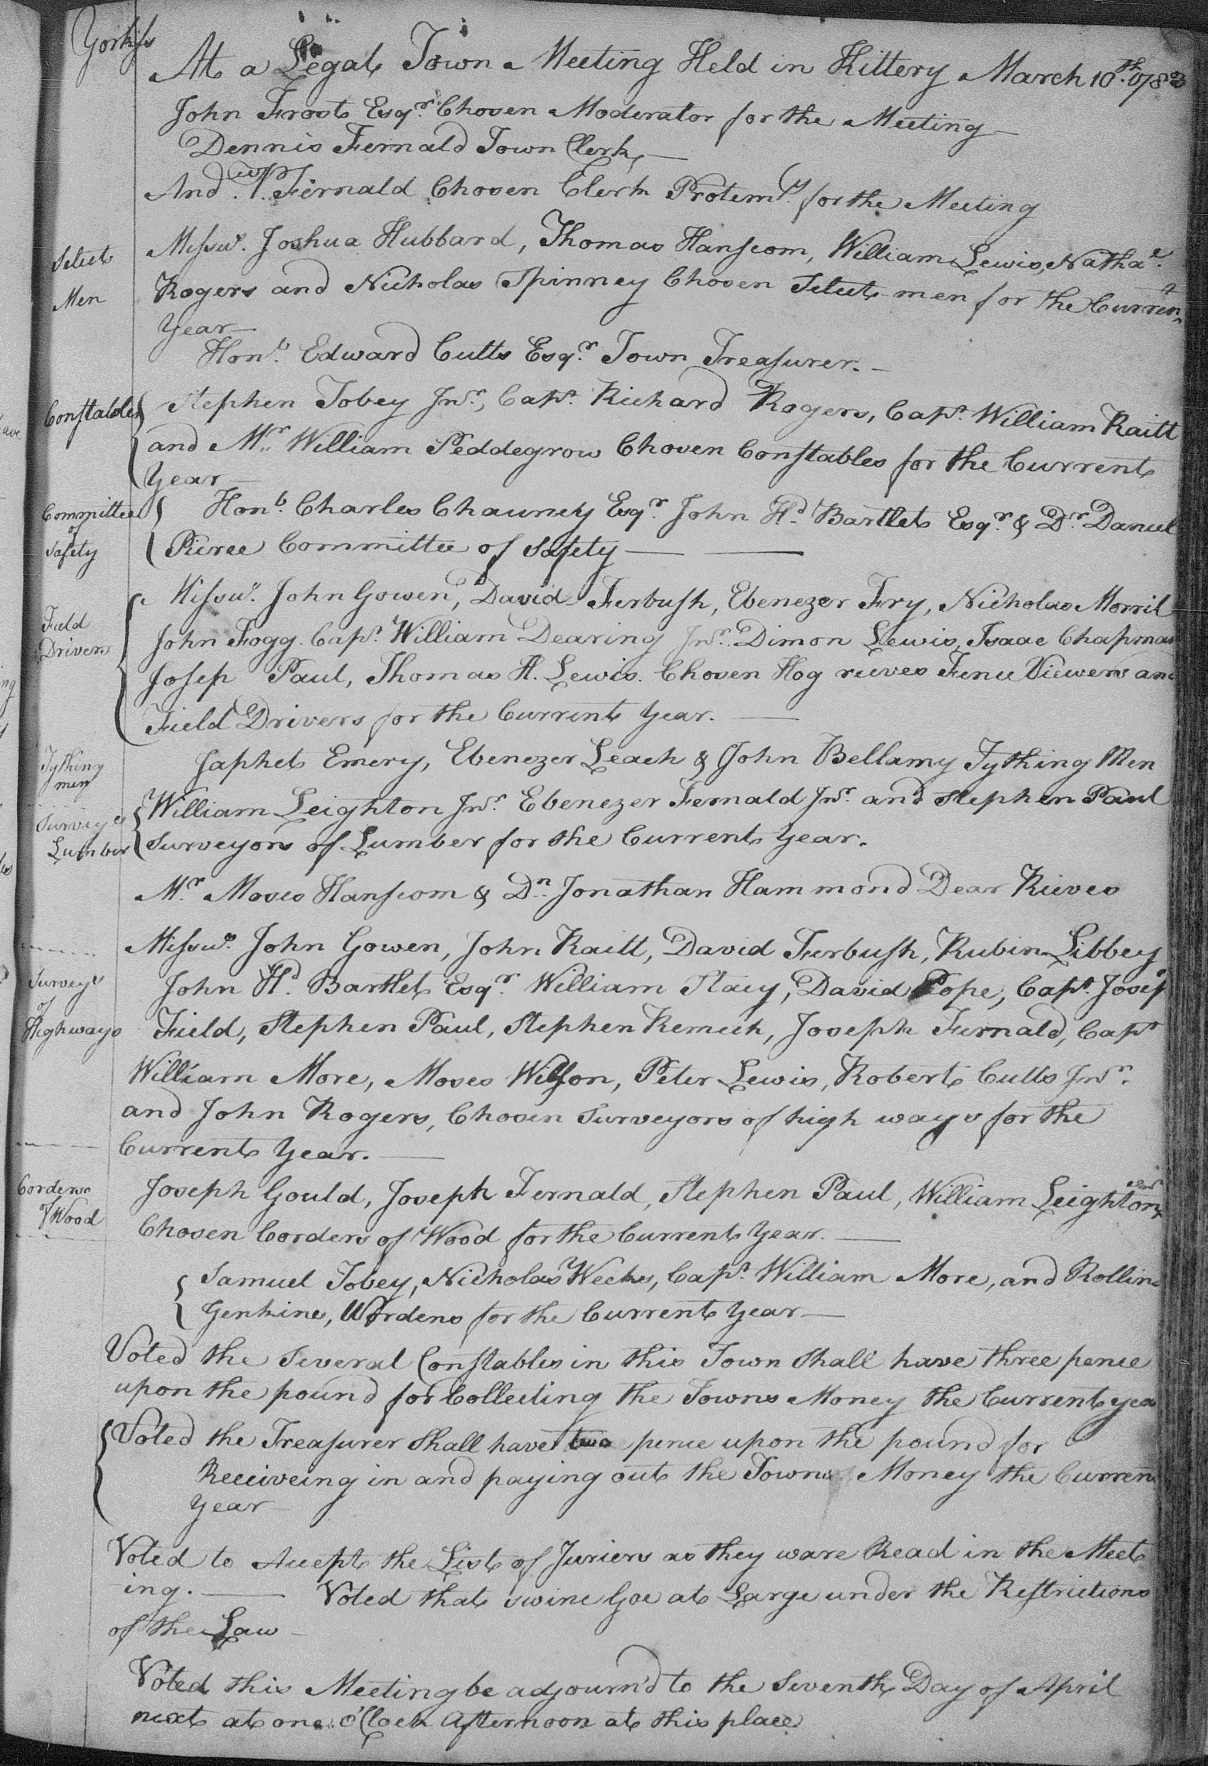 York ss
At a Legal Town Meeting Held in Kittery March 10th 1783
John Frost Esqr. Chosen Moderator for the Meeting
Dennis Fernald Town Clerk
And Wm. Fernald Chosen Clerk Protemy. for the Meeting
Select
Men
Messrs. Joshua Hubbard, Thomas Hanscom, William Lewis, Nathal.
Rogers and Nicholas Spinney Chosen Select men for the Current
Year
Honb. Edward Cutts Esqr. Town Treasurer.
Constables
Stephen Tobey Jnr., Capt. Richard Rogers, Capt. William Raitt
and Mr. William Peddegrow Chosen Constables for the Current
Year
Committee
of
Safety
Honb. Charles Chauncy Esqr. John Hd. Bartlet Esqr. & Dr. Daniel
Pierce Committee of Safety
Field
Drivers
Messrs. John Gowen, David Furbush, Ebenezer Fry, Nicholas Morril
John Fogg. Capt. William Dearing Jnr. Dimon Lewis, Isaac Chapman
Josep Paul, Thomas A. Lewis. Chosen Hog reeves Fence Viewers and
Field Drivers for the Current Year.
Tything
men
Japhet Emery, Ebenezer Leach & John Bellamy Tything Men
Surveyrs
Lumber
William Leighton Jnr. Ebenezer Fernald Jnr. and Stephen Paul
Surveyors of Lumber for the Current Year.
Mr. Moses Hanscom & Dn. Jonathan Hammond Dear Rieves
Messrs. John Gowen, John Raitt, David Furbush, Rubin Libbey
Surveyrs
of
Highways
John Hd. Bartlet Esqr. William Stacy, David Pope, Capt. Josep
Field, Stephen Paul, Stephen Remich, Joseph Fernald, Capt
William More, Moses Wilson, Peter Lewis, Robert Cutts Jnr.
and John Rogers, Chosen Surveyors of high ways for the
Current Year.
Corders
of Wood
Joseph Gould, Joseph Fernald, Stephen Paul, William Leighton Jnr
Chosen Corders of Wood for the Current Year.
Samuel Tobey, Nicholas Weeks, Capt. William More, and Rollins
Genkins, Wordens for the Current Year
Voted the Several Constables in this Town Shall have three pence
upon the pound for Collecting the Towns Money the Current year
Voted the Treasurer Shall have two pence upon the pound for
Receiveing in and paying out the Towns Money the Current
Year
Voted to Accept the List of Juriers as they ware Read in the Meet
ing. Voted that swine Goe at Large under the Restrictions
of the Law
Voted this Meeting be adjourn'd to the Seventh Day of April
next at one o'Clock Afternoon at this place